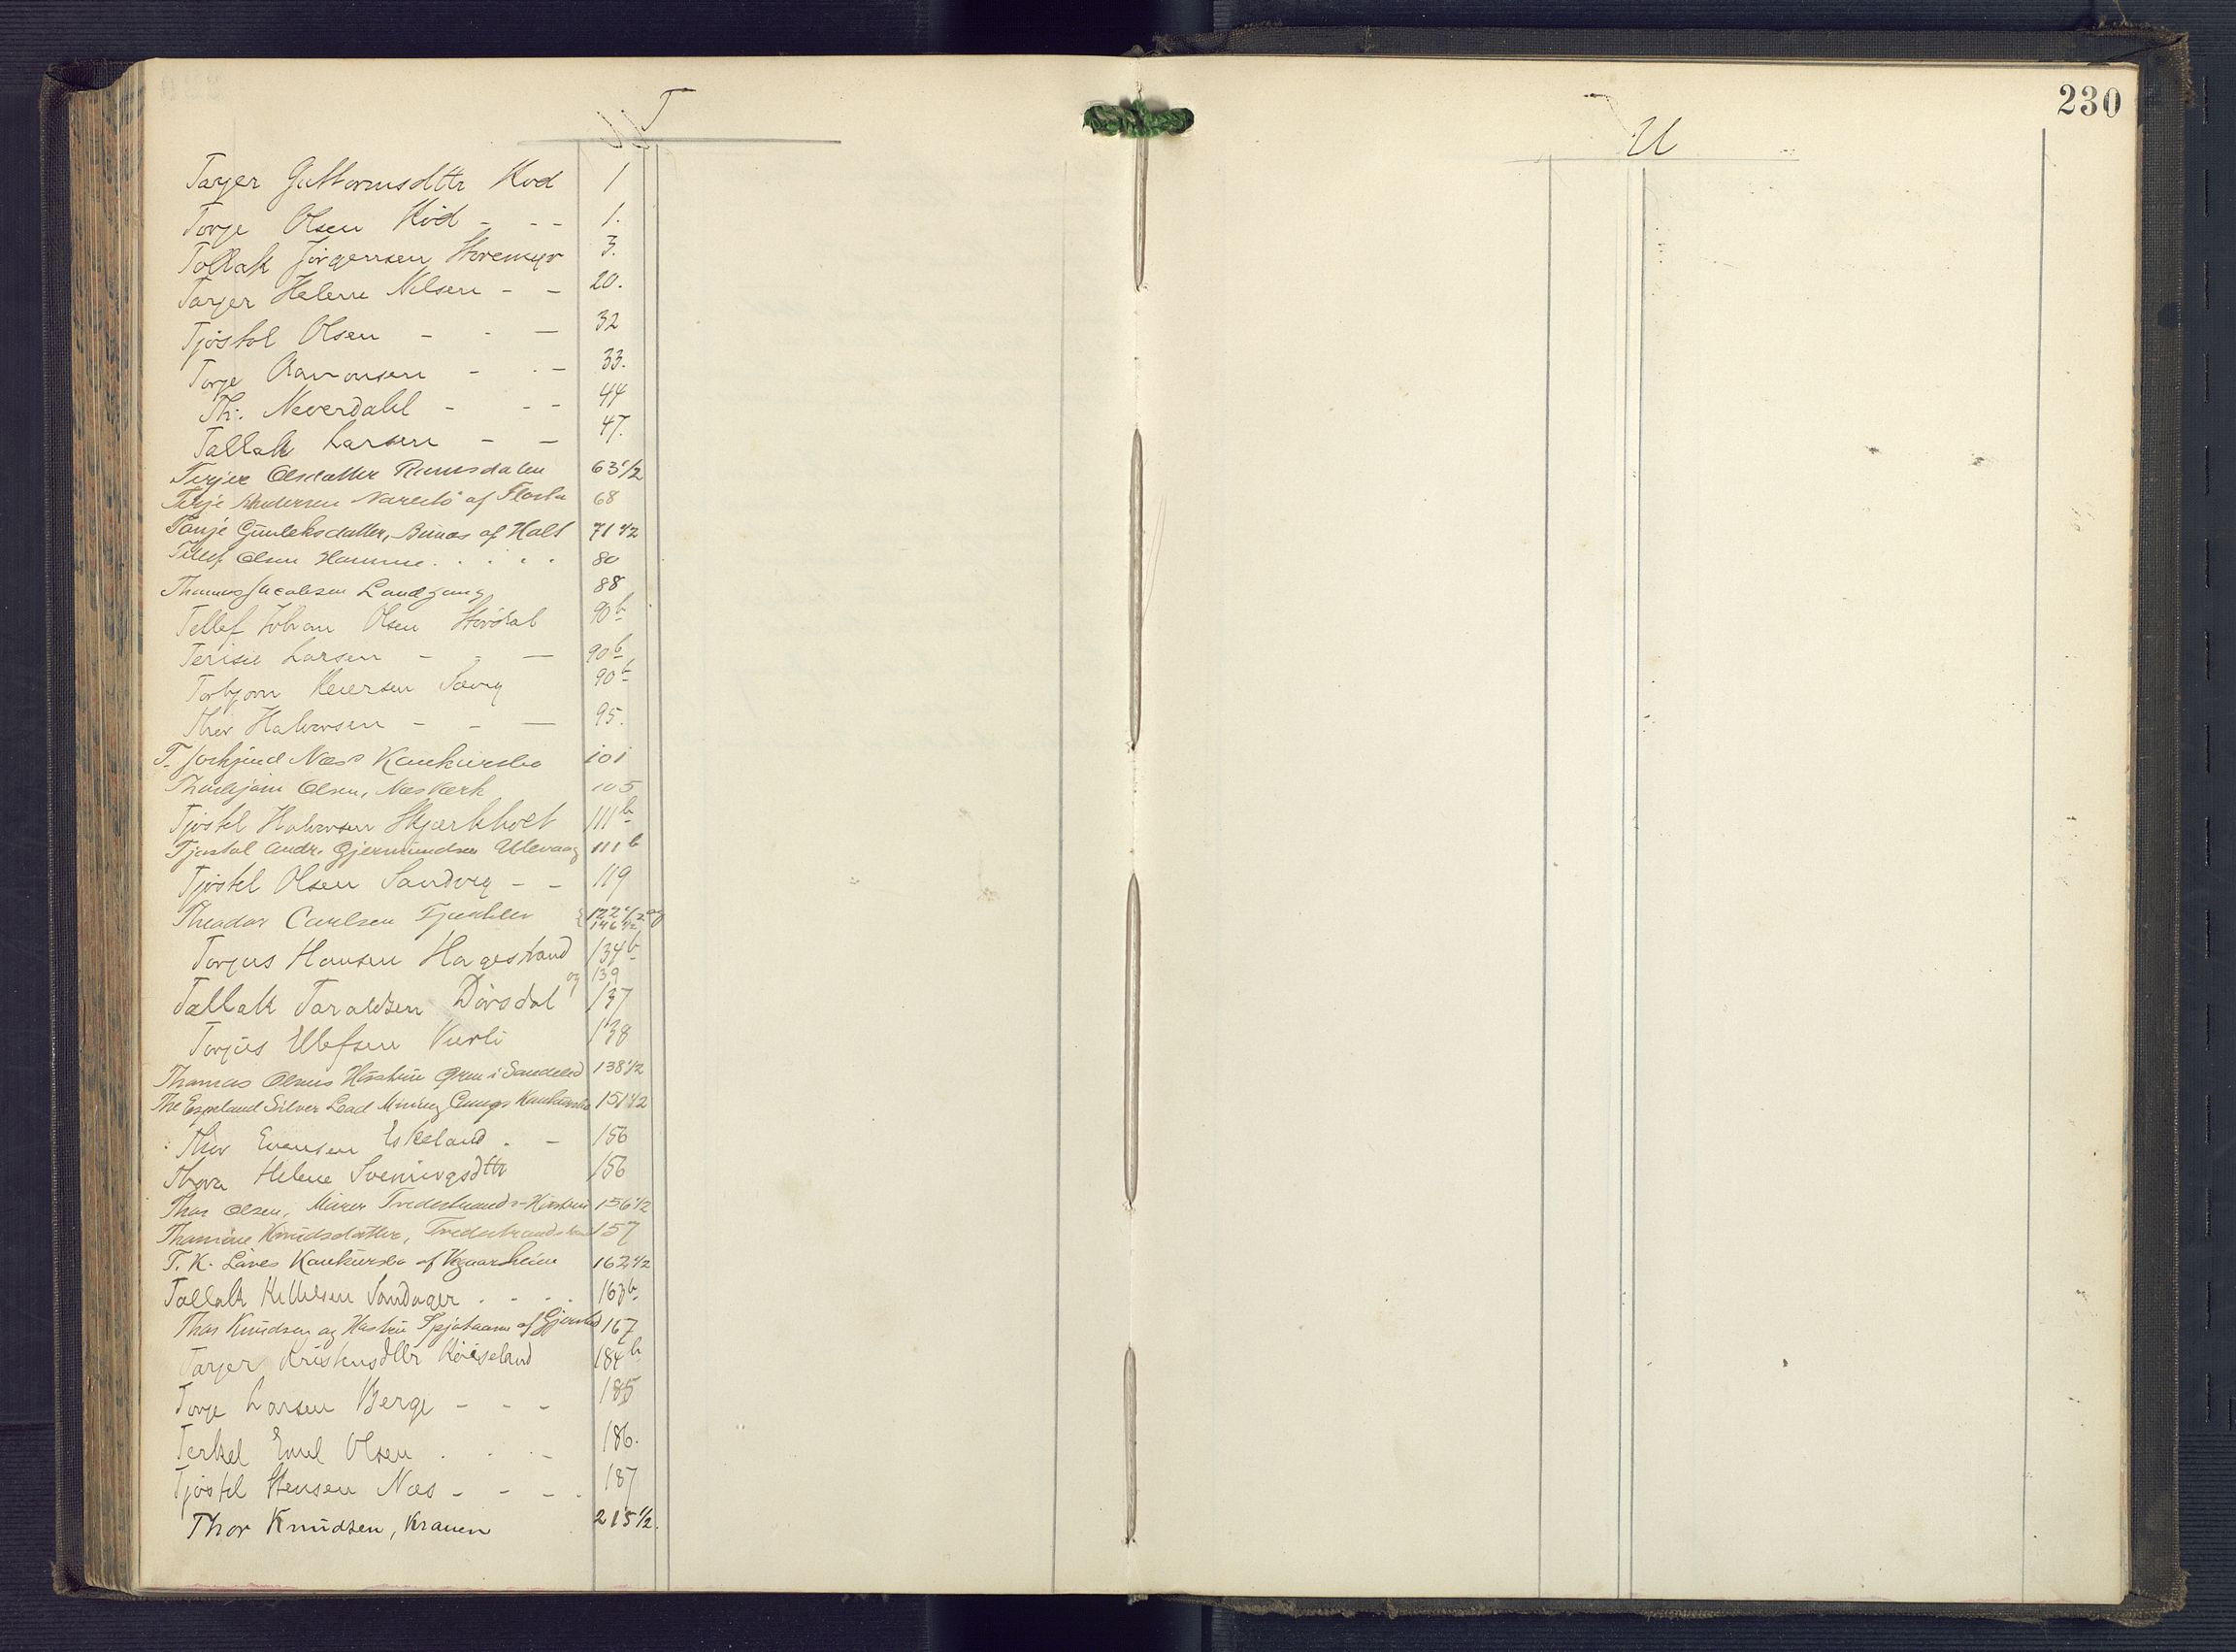 T
Tarjer Guttormsdttr Kvd 1
Torje Olsen Kvid - - - 1.
Tollak Jörgensen Storemyr 3.
Tarjer Helene Nilsen - - 20.
Tjöstol Olsen - - - 32
Torje Aanonsen - - - 33.
Th: Neverdahl - - - 44
Tallak Larsen - - 47.
Terjer Olsdatter Ramsdalen 63 1/2
Terje Andersen Narestö af Flosta 68
Tarije Gunleksdatter, Buaas af Holt 71 1/2
Tellef Olsen Hamme . . . . . 80
Thomas Jacobsen Landgang 88
Tellef Johan Olsen Stordal 90 b
Terisie Larsen - - - 90 b
Torbjorn Reiersen Sævig 90 b
Thor Halvorsen - - - 95.
T. Jorkjend Næs Konkursbo 101
Thorbjörn Olsen, Næs Værk 105
Tjöstel Halvorsen Skjærkholt 111 b
Tjöstol Andr. Gjermundsen Ulevaag 111 b
Tjöstel Olsen Sandvig - - 119
Theodor Carlsen Fjeldal 122 1/2 og
146 1/2
Torjus Hansen Hagestrand 134 b
og 139
Tallak Taraldsen Dörsdal 137
Torjus Ellefsen Vierli 138
Thomas Olsens Hustru Gren i Søndeled 138 1/2
The Espeland Silver Lead Mining Compys Konkursbo 151 1/2
Thor Evensen Eskeland . - 156
Thora Helene Sveinungsdttr 156
Thor Olsen, Murer Tvedestrand & Hustru 156 1/2
Thomine Knudsdatter, Tvedestrand 157
T. K. Lães Konkursbo af Vegaarsheien 162 1/2
Tallak Kittelsen Sandager . . . . 163 b
Thor Knudsen og Hustru af Gjerstad 167
Tarjer Kristensdttr Röiseland 184 b
Torje Larsen Berge - - - 185
Terkel Emil Olsen . . - 186.
Tjöstel Stensen Næs - - - . 187
Thor Knudsen, Kranen 215 1/2.
U
230